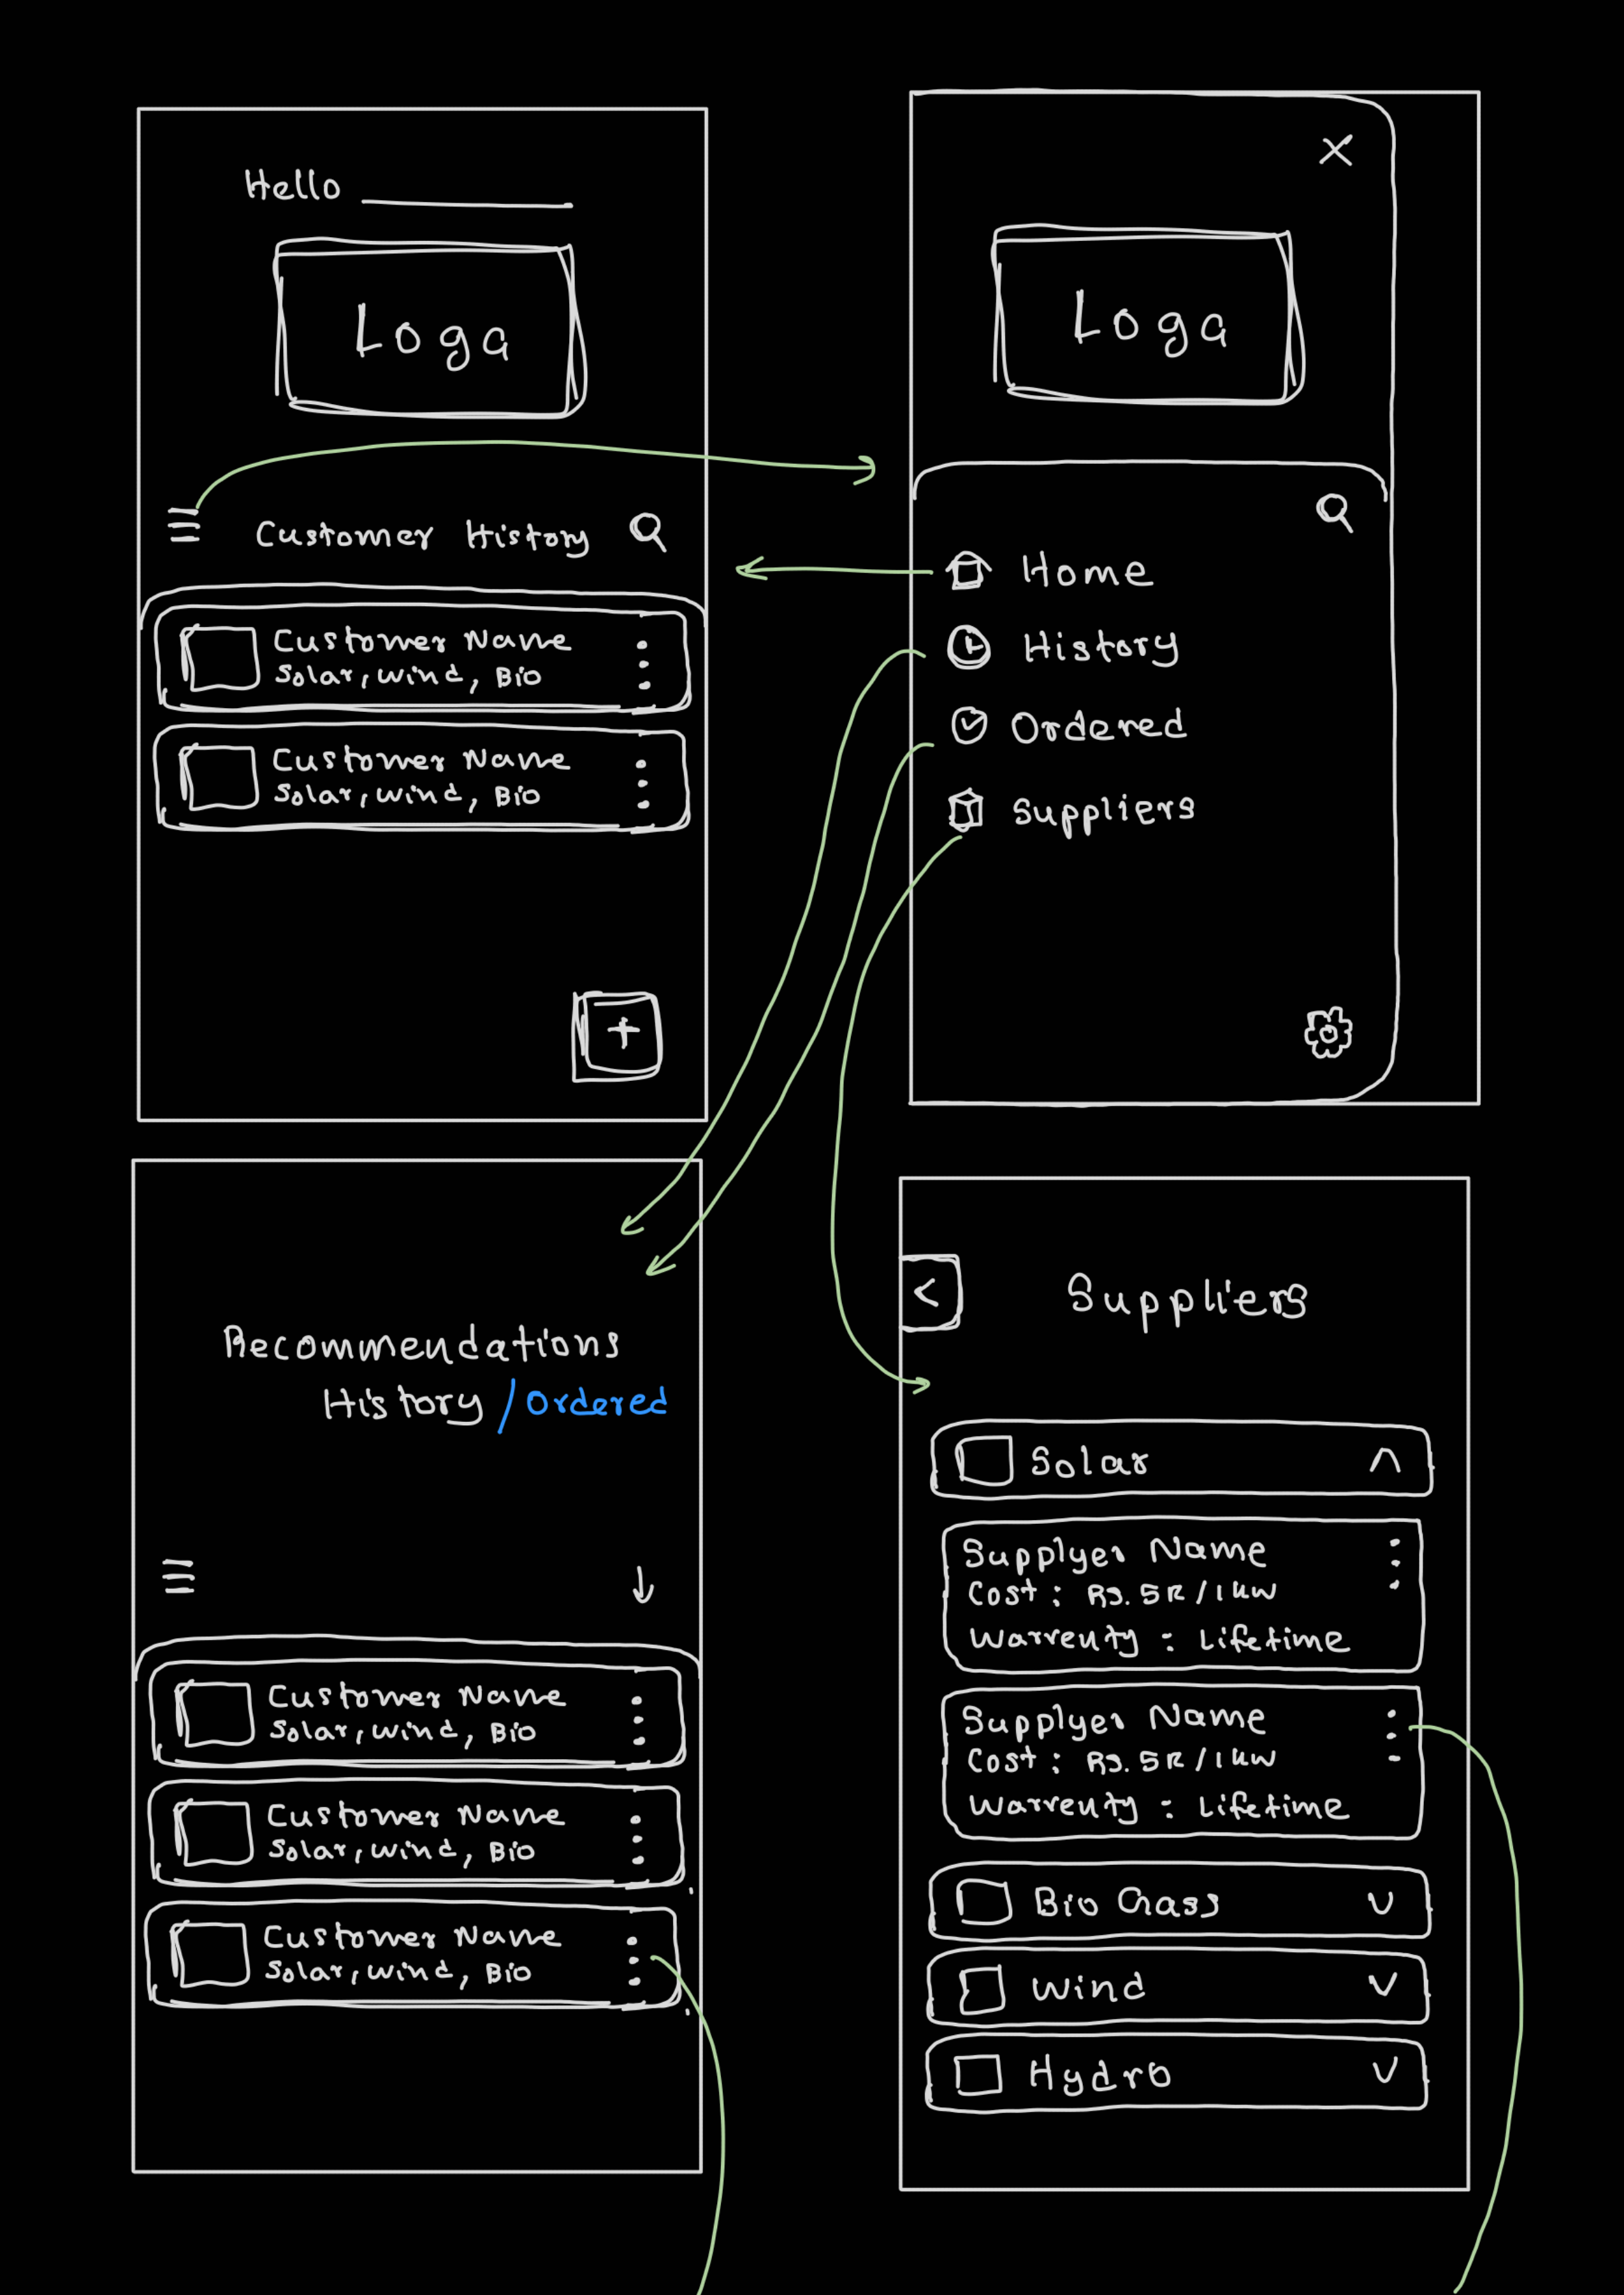 Hello
Loga
Customer History
Customer Name
Solar, Wind, Bio
Customer Name
Solar, Wind, Bio
+
Loga
Home
History
Ordered
Suppliers
Recommendations
History / Ordered
Customer Name
Solar, Wind, Bio
Customer Name
Solar, Wind, Bio
Customer Name
Solar, Wind, Bio
Suppliers
Solar
Supplyer Name
Cost : Rs. 5K/1kW
Warrenty : Lifetime
Supplyer Name
Cost : Rs. 5K/1kW
Warrenty : Lifetime
Bio Gass
Wind
Hydro